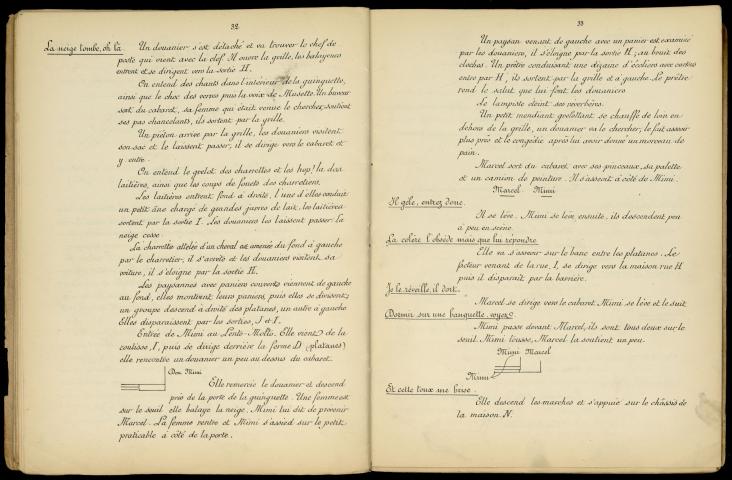 32.
La neige tombe, oh là Un douanier s'est détaché et va trouver le chef de
poste qui vient avec la clef. Il ouvre la grille, les balayeurs
entrent et se dirigent vers la sortie H.
On entend des chants dans l'intérieur de la guinguette,
ainsi que le choc des verres puis la voix de Musette. Un buveur
sort du cabaret, sa femme qui était venue le chercher, soutient
ses pas chancelants, ils sortent par la grille.
Un piéton arrive par la grille, les douaniers visitent
son sac et le laissent passer; il se dirige vers le cabaret et
y entre.
On entend le grelot des charrettes et les hop! la des
laitières, ainsi que les coups de fouets des charretiers.
Les laitières entrent fond à droite, l'une d'elles conduit
un petit âne chargé de grandes jarres de lait, les laitières
sortent par la sortie I. Les douaniers les laissent passer. La
neige cesse.
La charrette attelée d'un cheval est amenée du fond à gauche
par le charretier, il s'arrête et les douaniers visitent sa
voiture, il s'éloigne par la sortie H.
Les paysannes avec paniers couverts viennent de gauche
au fond, elles montrent leurs paniers, puis elles se divisent;
un groupe descend à droite des platanes, un autre à gauche
Elles disparaissent par les sorties, J et I.
Entrée de Mimi au Petit-Motto. Elle vient de la
coulisse I, puis se dirige derrière la ferme D (platanes)
elle rencontre un douanier un peu au dessus du cabaret.
Dou. Mimi
Elle remercie le douanier et descend
près de la porte de la guinguette. Une femme est
sur le seuil elle balaye la neige, Mimi lui dit de prévenir
Marcel. La femme rentre et Mimi s'assied sur le petit
praticable à côté de la porte.
33
Un paysan venant de gauche avec un panier est examiné
par les douaniers, il s'éloigne par la sortie H; au bruit des
cloches. Un prêtre conduisant une dizaine d'écoliers avec cartons
entre par H, ils sortent par la grille et à gauche. Le prêtre
rend le salut que lui font les douaniers
Le lampiste éteint ses réverbères.
Un petit mendiant grelottant se chauffe de loin en
dehors de la grille, un douanier va le chercher, le fait asseoir
plus près et le congédie après lui avoir donné un morceau de
pain.
Marcel sort du cabaret avec ses pinceaux, sa palette
et un camion de peinture. Il s'asseoit à côté de Mimi.
Marcel Mimi
Il gèle, entrez donc.
Il se lève. Mimi se lève ensuite, ils descendent peu
à peu en scène.
La colère l'obsède mais que lui répondre
Elle va s'asseoir sur le banc entre les platanes. Le
facteur venant de la rue, I, se dirige vers la maison rue H
puis il disparaît par la barrière.
Je le réveille, il dort.
Marcel se dirige vers le cabaret Mimi se lève et le suit
Dormir sur une banquette, voyez
Mimi passe devant Marcel, ils sont tous deux sur le
seuil. Mimi tousse, Marcel la soutient un peu.
Mimi Marcel
Mimi
Et cette toux me brise.
Elle descend les marches et s'appuie sur le châssis de
la maison N.